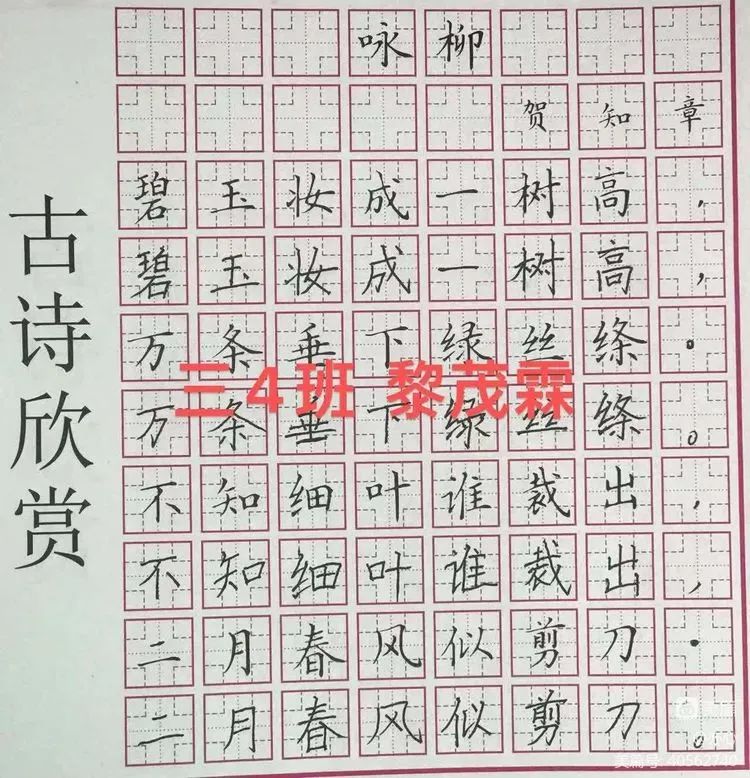 古诗欣赏
咏柳
贺知章
碧玉妆成一树高，
碧玉妆成一树高，
万条垂下绿丝绦。
三4班 黎茂霖
万条垂下绿丝绦。
不知细叶谁裁出，
不知细叶谁裁出，
二月春风似剪刀.
二月春风似剪刀。
美篇号:40562740